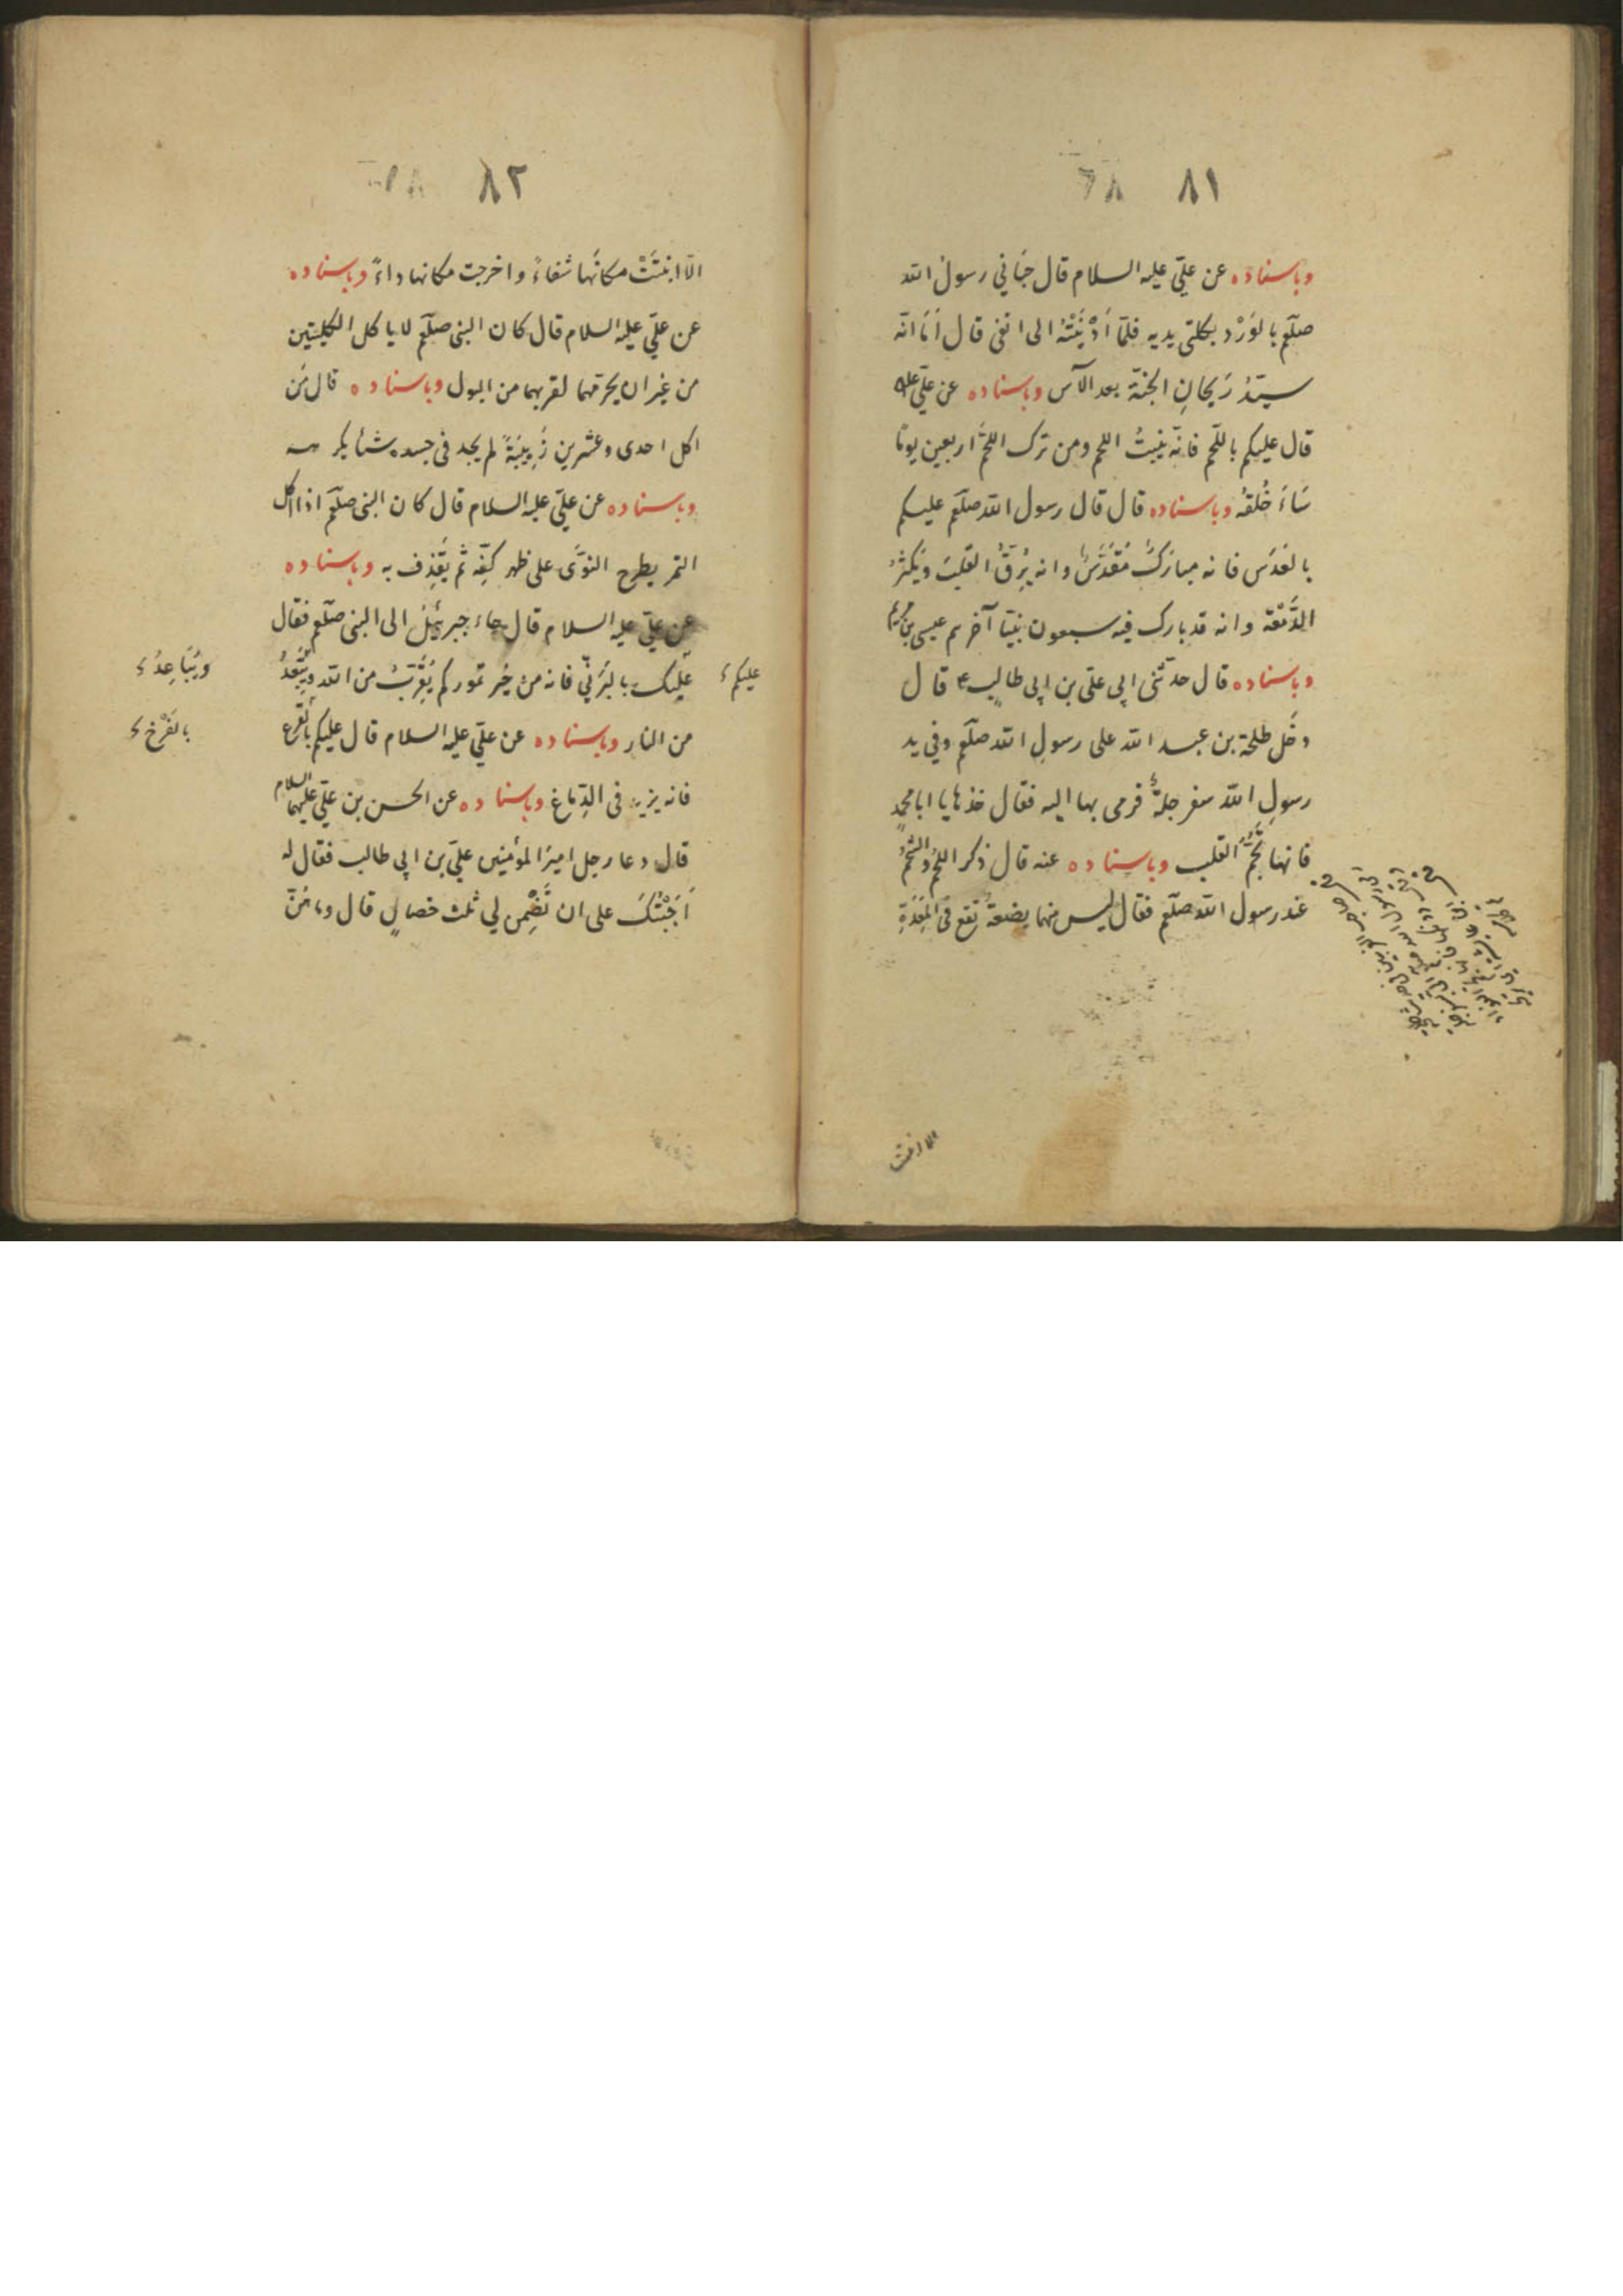 ٨١
وباسناده عن علیّ علیه السلام قال حَبَانی رسولُ الله
صلّعم بالوَرْد بکلتی یدیه فلمّا اَدْنَیْتُهُ الی انفی قال اَمَا انّه
سیّدُ رَیحانِ الجنّة بعد الآس وباسناده عن علیّ علیه
قال علیکم باللّحم فانّه یُنبِتُ اللحم ومن ترک اللحمَ اربعین یومًا
سَاءَ خُلقُهُ وباسناده قال قال رسول الله صلّعم علیکم
بالعَدَس فانه مبارَکٌ مُقَدَّسٌ وانه یُرِقُّ القَلبَ ویُکثرُ
الدَّمْعَة وانه قد بارک فیه سبعون نبیّا آخرهم عیسی بن مریم
وباسناده قال حدّثنی ابی علی بن ابی طالب ع قال
دخَل طلحة بن عبد الله علی رسولِ الله صلّعم وفی ید
رسولِ الله سفرجلةٌ فرمی بها الیه فقال خذها یا ابا محمدٍ
فانها تُجِمُّ القلب وباسناده عنه قال ذکر اللحمُ والشحمُ
عند رسول الله صلّعم فقال لیس منهما بضعةٌ تقع فی المَعِدَةِ
الا انبتت
٨٢
الّا انبَتَتْ مکانَها شفاءً واخرجت مکانها داءً وباسناده
عن علیّ علیه السلام قال کان النبی صلّعم لا یاکل الکلیتین
من غیر ان یحرّمهما لقربهما من البول وباسناده قال مَن
اکل احدی وعشرین زَبِیبَةً لم یجد فی جسده شئا یکرهه
وباسناده عن علیّ علیه السلام قال کان النبی صلّعم اذا اکل
التمر یطرح النوَی علی ظهر کفِّه ثم یَقذِف به وباسناده
عن علیّ علیه السلام قال جاء جبرئیل الی النبی صلّعم فقال
علیک بالبَرنِیّ فانه من خیر تمورکم یُقَرِّبُ من الله ویُبَعِّدُ
علیکم
ویُبَاعِدُ
من النار وباسناده عن علیّ علیه السلام قال علیکم بالقرع
بالقَرْع
فانه یزید فی الدِّماغ وباسناده عن الحسن بن علیّ علیهما السلام
قال دعا رجل امیرَ المؤمنین علیّ بن ابی طالب فقال له
اَجَبْتُکَ علی ان تَضْمِن لی ثلث خصالٍ قال وما هُنّ